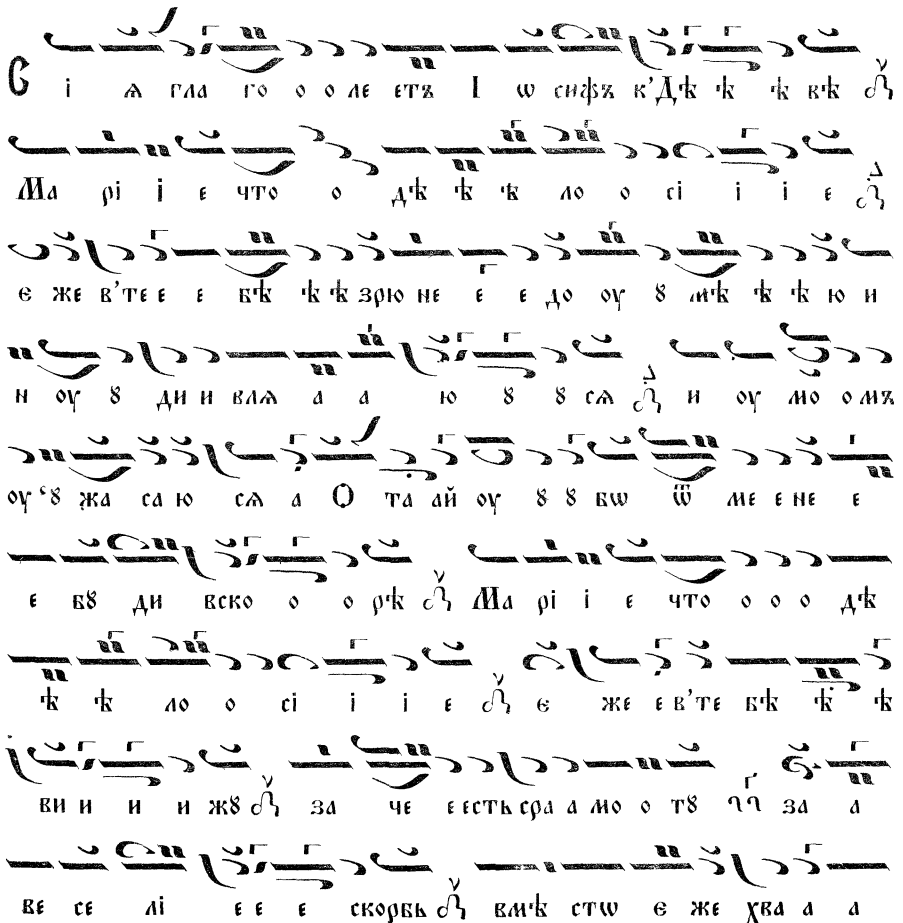 Сі ѧ гла го о о ле етъ І ѡ сифъ к’Дѣ ѣ ѣ вѣ
Ма рі і е что о дѣ ѣ ѣ ло о сі і і е
є же в’те е е бѣ ѣ ѣ зрю не е е до оу ꙋ мѣ ѣ ѣ ю и
н оу ꙋ ди и и влѧ а а ю ꙋ ꙋ сѧ и оу мо о о мъ
оу ‘ꙋ жа са ю сѧ а О та ай оу ꙋ ꙋ бѡ ѿ ме е не е
е бꙋ ди вско о о рѣ Ма рі і е что о о о дѣ
ѣ ѣ ло о сі і і е є же е в’те бѣ ѣ ѣ
ви и и и жꙋ за че е есть сра а мо о тꙋ за а
ве се лі е е е скорбь вмѣ стѡ є же хва а а